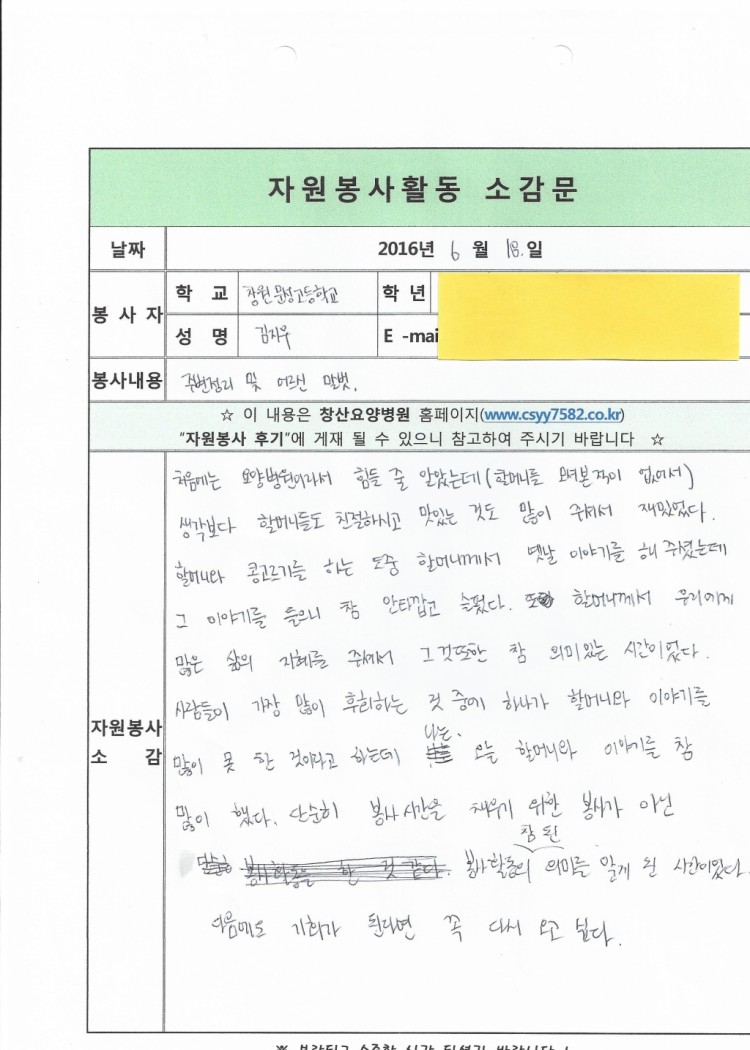 자원봉사활동 소감문
날짜 2016년 6 월 18.일
봉 사 자
학 교 창원문성고등학교 학 년
성 명 김지우 E -mai
봉사내용 주변정리 및 어르신 말벗.
☆ 이 내용은 창산요양병원 홈페이지(www.csyy7582.co.kr)
"자원봉사 후기"에 게재 될 수 있으니 참고하여 주시기 바랍니다 ☆
자원봉사
소 감
처음에는 요양병원이라서 힘들 줄 알았는데(할머니를 모셔본적이 없어서)
생각보다 할머니들도 친절하시고 맛있는 것도 많이 주셔서 재밌었다.
할머니와 콩고르기를 하는 도중 할머니께서 옛날 이야기를 해 주셨는데
그 이야기를 들으니 참 안타깝고 슬펐다. 또한 할머니께서 우리에게
많은 삶의 지혜를 주셔서 그것또한 참 의미있는 시간이었다.
사람들이 가장 많이 후회하는 것 중에 하나가 할머니와 이야기를
많이 못 한 것이라고 하는데 나는. 오늘 할머니와 이야기를 참
많이 했다. 단순히 봉사시간을 채우기 위한 봉사가 아닌
봉사활동을 한 것 같다. 봉사활동의 참된 의미를 알게 된 시간이었다.
다음에도 기회가 된다면 꼭 다시 오고 싶다.